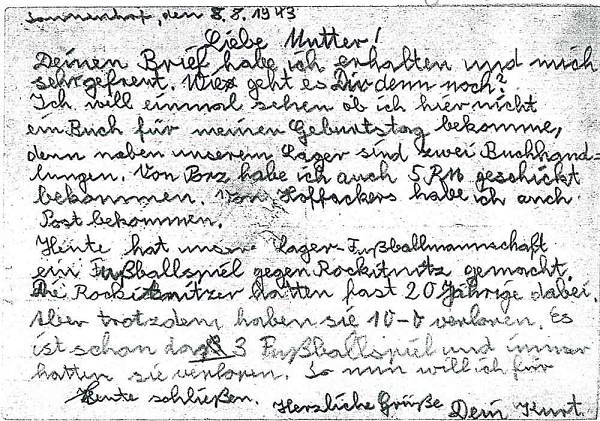 Sommersdorf, den 8.8.1943
Liebe Mutter!
Deinen Brief habe ich erhalten und mich
sehr gefreut. Wie geht es Dir denn noch?
Ich will einmal sehen ob ich hier nicht
ein Buch für meinen Geburtstag bekomme,
denn neben unserem Lager sind zwei Buchhand-
lungen. Von Porz habe ich auch 5 RM geschickt
bekommen. Von Hoffackers habe ich auch
Post bekommen.
Heute hat unsere Lager-Fußballmannschaft
ein Fußballspiel gegen Rockitnitz gemacht.
Die Rockitnitzer hatten fast 20 Jährige dabei.
Aber trotzdem haben sie 10-0 verloren. Es
ist schon das 3 Fußballspiel und immer
hatten sie verloren. So nun will ich für
Heute schließen. Herzliche Grüße Dein Kurt.